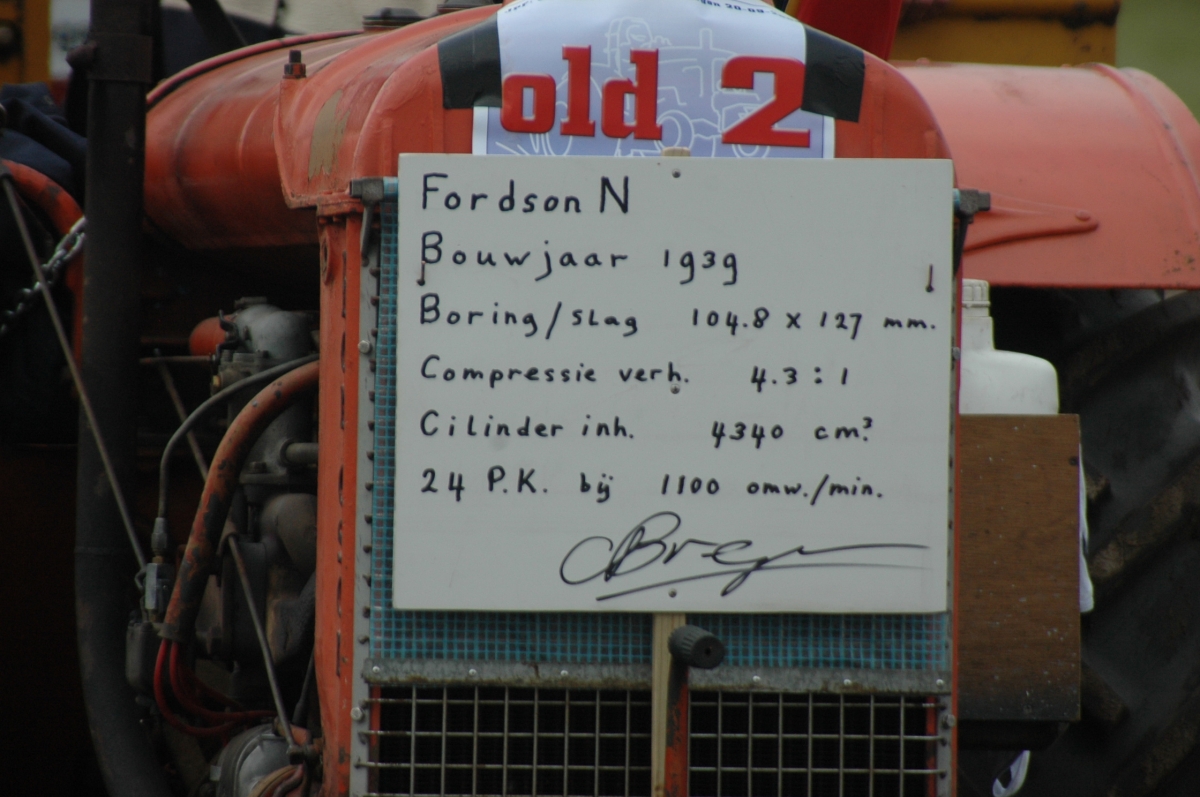 old 2
Fordson N
Bouwjaar 1939
Boring/slag 104.8 x 127 mm.
Compressie verh. 4.3 : 1
Cilinder inh. 4340 cm³.
24 P.K. bij 1100 omw./min.